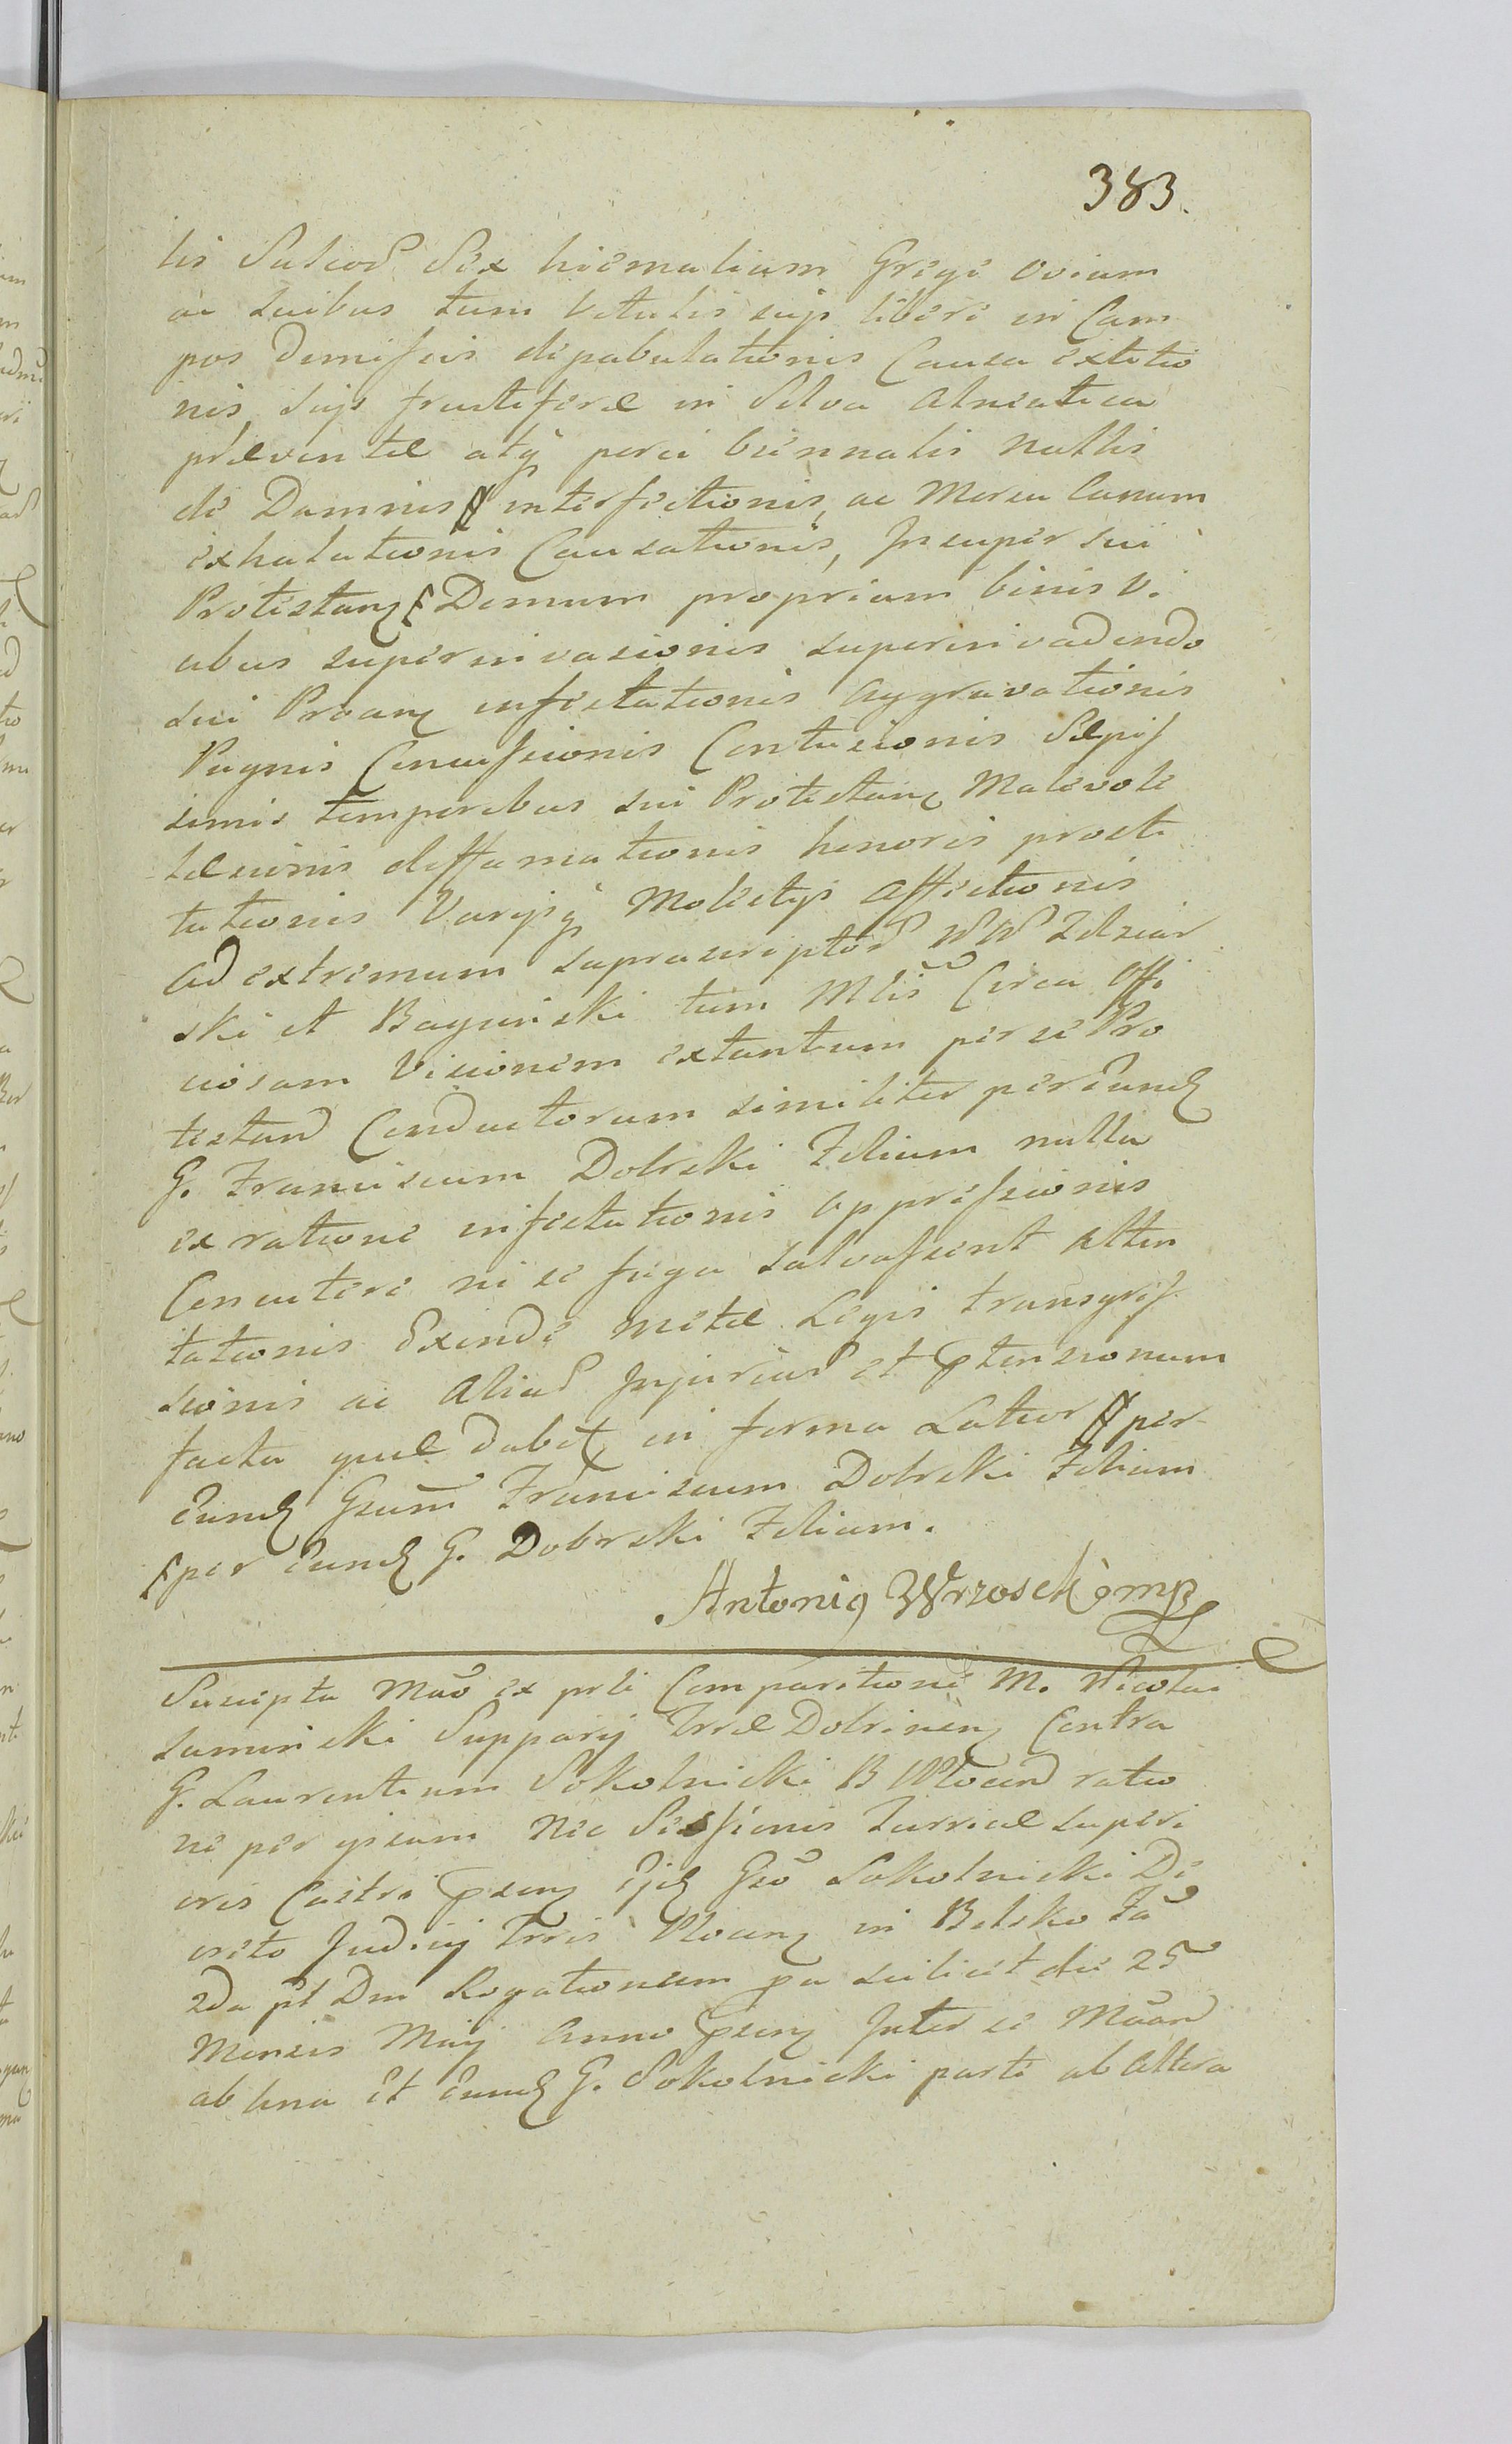 383.
lis Sulcoꝝ Sex hiemalium Grege ovium
ac suibus tum Vitulis suis libere in Cam
pos dimissis depabulationis Causa extitio
nis, suis fructiferæ in Silva Alneatica
præventæ atq̃ porci biennalis nullis
de Damnis ꝟ interfectionis, ac Morsu Canum
exhalationis Causationis, Insuper sui
Protestanꝭ ſ Domum propriam binis vi
cibus superinvasionis superinvadendo
sui Proanꝭ insectationis aggravationis
Pugnis Concussionis Contusionis Sæpis
simis temporibus sui Protestanꝭ Malevole
læsionis diffamationis honoris prosti
tutionis Varijsq̃ Molestijs affectionis
ad extremum suprascriptoꝝ WW Zdziar
ski et Baguński tum Mlis Circa Offi
ciosam Visionem extantium per se Pro
testanđ Conductorum similiter per Eundꝭ
G. Franciscum Dobrski Filium nulla
ex ratione insectationis oppressionis
Concutere ni se fuga salvassent atten
tationis Exinde metæ Legis transgres
sionis ac Aliaꝝ Injuriaꝝ et prætensionum
facta quæ dabitꝭ in forma Latior ꝟ per
Eundꝭ Gsum Franciscum Dobrski Filium
ſ per Eundꝭ G. Dobrski Filium.
Antoniꝯ Wrzosek mp
Suscipta Mãõ ex prti Comparitione M. Nicolai
Lamiński Supparij Trræ Dobrinenꝭ Contra
G. Laurentium Sokolnicki B Płocen ratio
ne per ipsum Nec Sessionis Turriæ superi
oris Castri præsenꝭ Ejdꝭ Gsõ Sokolnicki De
creto Judicij Trris Plocenꝭ in Bielsko Fã
2da pt Dm Rogationum pa scilicet die 25
Mensis Maij Anno præsenꝭ Inter se Mãanđ
ab Una Et Eundꝭ G. Sokolnicki parte ab Altera